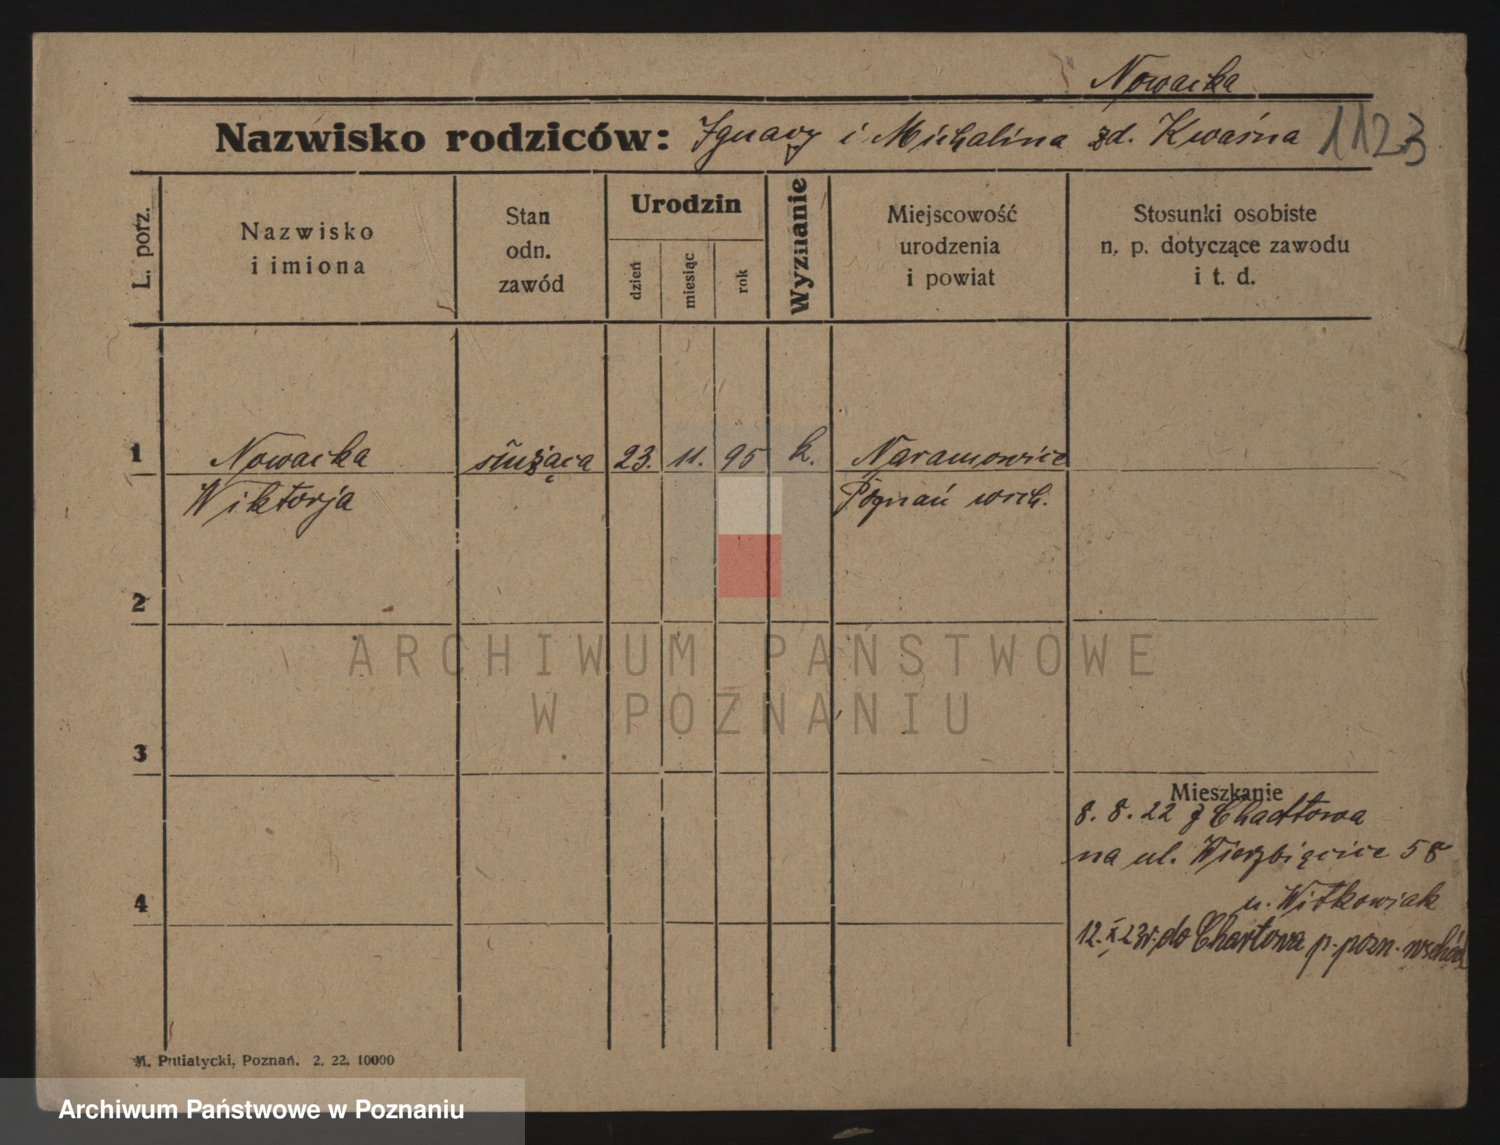 Nowacka
Nazwisko rodziców: Ignacy i Michalina zd. Kwaśna 1123
L. porz.
Nazwisko
i imiona
Stan
odn.
zawód
Urodzin
dzień
miesiąc
rok
Wyznanie
Miejscowość
urodzenia
i powiat
Stosunki osobiste
n. p. dotyczące zawodu
i t. d.
1 Nowacka służąca 23. 11. 95 k. Naramowice
Wiktorja Poznań wsch.
2
ARCHIWUM PAŃSTWOWE
W POZNANIU
3
Mieszkanie
8. 8. 22 z Chartowa
na ul. Wierzbięcice 58
u. Witkowiak
4
12. X 23r. do Chartowa p. pozn. wschód
M. Putiatycki, Poznań. 2. 22. 10000
Archiwum Państwowe w Poznaniu